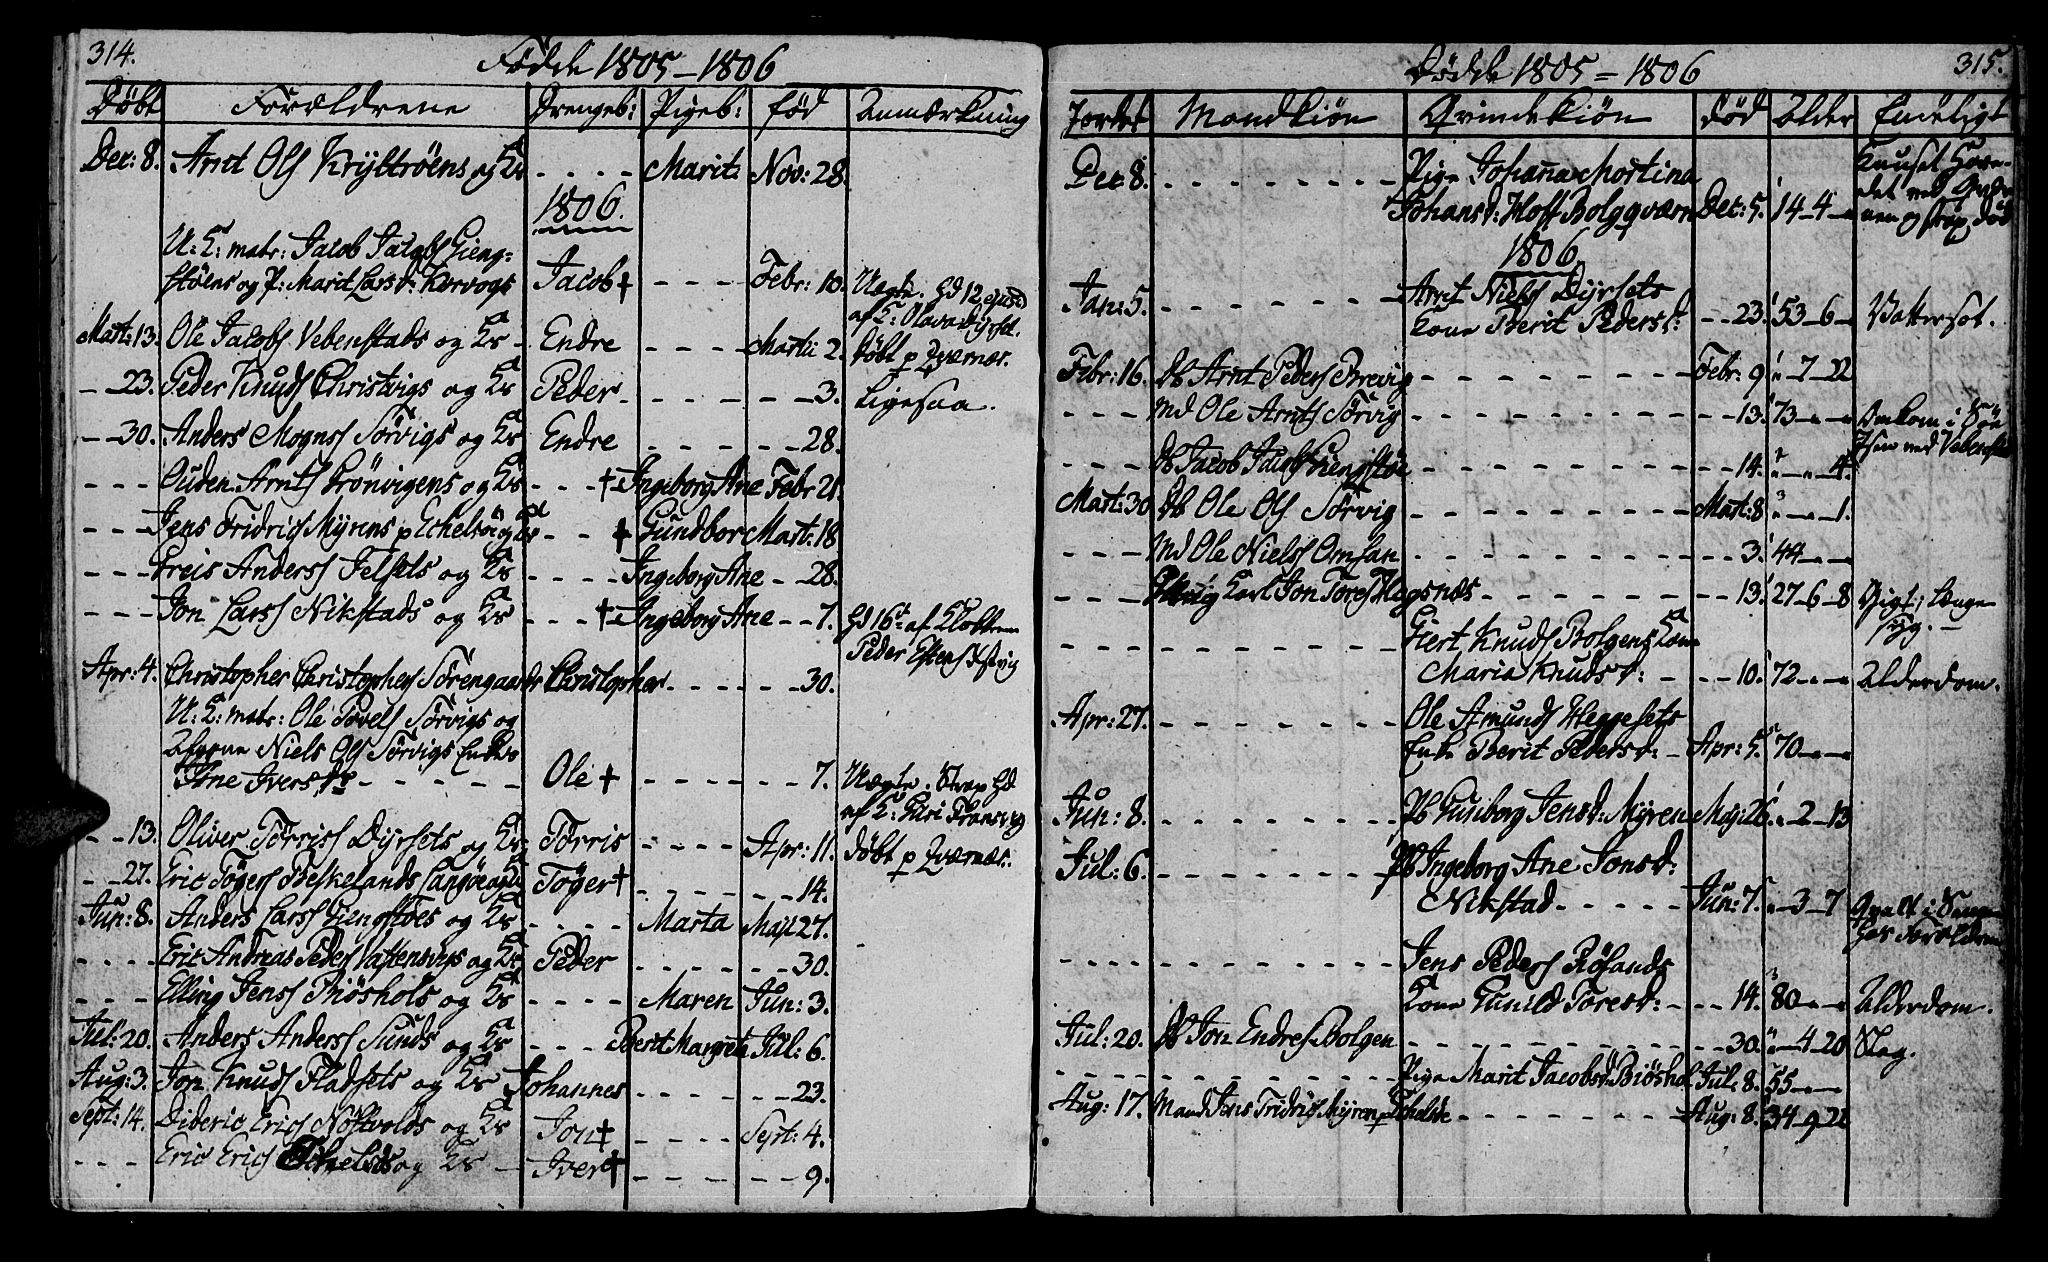 314.
Fødde 1805-1806
Døbt Forældrene Drengeb: Pigeb: fød Anmærkning
Dec: 8. Arnt Ols Krystrøens og K: - - - - Marit Nov: 28.
1806.
U: E: matr: Jacob Jacobs Gieng-
støens og P: Marit Larsd: Korvogs Jacob † - - - Febr: 10. Uægte. Hd 12 ejusd
af K: Olava Dyrset.
døbt p Qværnæs.
Mart: 13. Ole Jacobs Vebenstads og K: - Endre - - - Martii 2.
- - 23. Peder Knuds Christvigs og K: Peder - - - - - 3. Ligesaa.
- - 30. Anders Mogns Sørvigs og K: Endre - - - - - 28.
- - - Ouden Arnts Brønvigens og K: - - † Ingeborg Ane Febr 21.
- - - Jens Fridrics Myrens p Echelsøe og K: - - † Gundbor Mart: 18
- - - Greis Anders Felsets og K: - - - - Ingeborg Ane - - 28.
- - - Jon Lars Nikstads og K: - - - † Ingeborg Ane - - 7. Hd 16t af Klokkeren
Peder Estens
Apr: 4. Christopher Christophers Sørengaards Christopher - - - - - - 30.
U: E: matr: Ole Povels Sørvigs og
Niels Ols Sørvigs Enkes
Ane Iversdr - - - - - Ole † - - - - - - 7. Uægte. Strap Hd
af K: Guri
døbt p Qværnæs.
- - 13. Oliver Tørris Dyrsets og K: Tørris - - - - Apr: 11.
- - 27. Eric Tøgers Beskelands Langøe og K: Tøger † - - - - - - 14.
Jun: 8. Anders Lars Giengstøes og K: - - - - Marta Maji 27.
- - - - Eric Andreas Peders Vattensvegs og K: Peder - - - - - - 30.
- - - Elling Jens Biøshols og K: - - - - Maren Jun: 3.
Jul: 20. Anders Anders Sunds og K: - - - Berit Margrete Jul: 6.
Aug: 3. Jon Knuds Fladsets og K: Johannes - - - - - - 23.
Sept: 14. Dideric Erics Nostvolds og K: Jon † - - - - Sept: 4.
- - - Eric Erics og K: - Iver † - - - - - - 9.
315.
Dødde 1805 = 1806
Jordet Mandkiøn Qvindekiøn død Alder Endeligt
Dec: 8. - - - - - - - Pige Johaña Martina
Johansd: Hoff Bolgqværn Dec: 5. 14-4- Knuset Hove-
det ved
nen og strax død
1806
Jan: 5. - - - - - - - Arnt Niels Dyrsets
Kone Berit Pedersd: - - 23. 53-6- Vattersot.
Febr: 16. Db Arnt Peders Brevig - - - - - - - Febr: 9 " 7-22
- - - Md Ole Arnts Sørvig - - - - - - - - - 13. 73 - - Omkom i Søe
ved Vebenstad
- - - Db Jacob Jacobs Giengstøe - - - - - - - - - 14. " - " 4.
Mart: 30 Db Ole Ols Sørvig - - - - - - - Mart: 8 " - " 1.
- - - Md Ole Niels Omsan - - - - - - - - - 3. 44 - -
- - - Karl Jon Tores Hegsnæs - - - - - - - - - 13. 27-6-8 Gigt, længe
syg. -
- - - - - - - - - - Giert Knuds Bolgens Kone
Maria Knudsd: - - - 10. 72 - - Alderdom.
Apr: 27. - - - - - - - Ole Amunds Heggesets
Enke Berit Pedersd: - Apr: 5. 70 - -
Jun: 8. - - - - - - - Pb Gunborg Jensd: Myren Maj: 26. " 2-13
Jul: 6. - - - - - - - Pb Ingeborg Ane Jonsd:
Nikstad - - - - - Jun: 7. " 3-7 Qvalt i Sengen
hos Forældrene
- - - - - - - - - - Jens Peders Røsands
Kone Gunild Toresd: - - - 14. 80 - - Alderdom.
Jul: 20. Db Jon Endres Bolgen - - - - - - - - - 30. " 4-20 Slag.
- - - - - - - - - - Pige Marit Jacobsd: Biøshol Jul: 8. 55 - -
Aug: 17. Mand Jens Fridrics Myren p - - - - - - - Aug: 8. 34-9-22